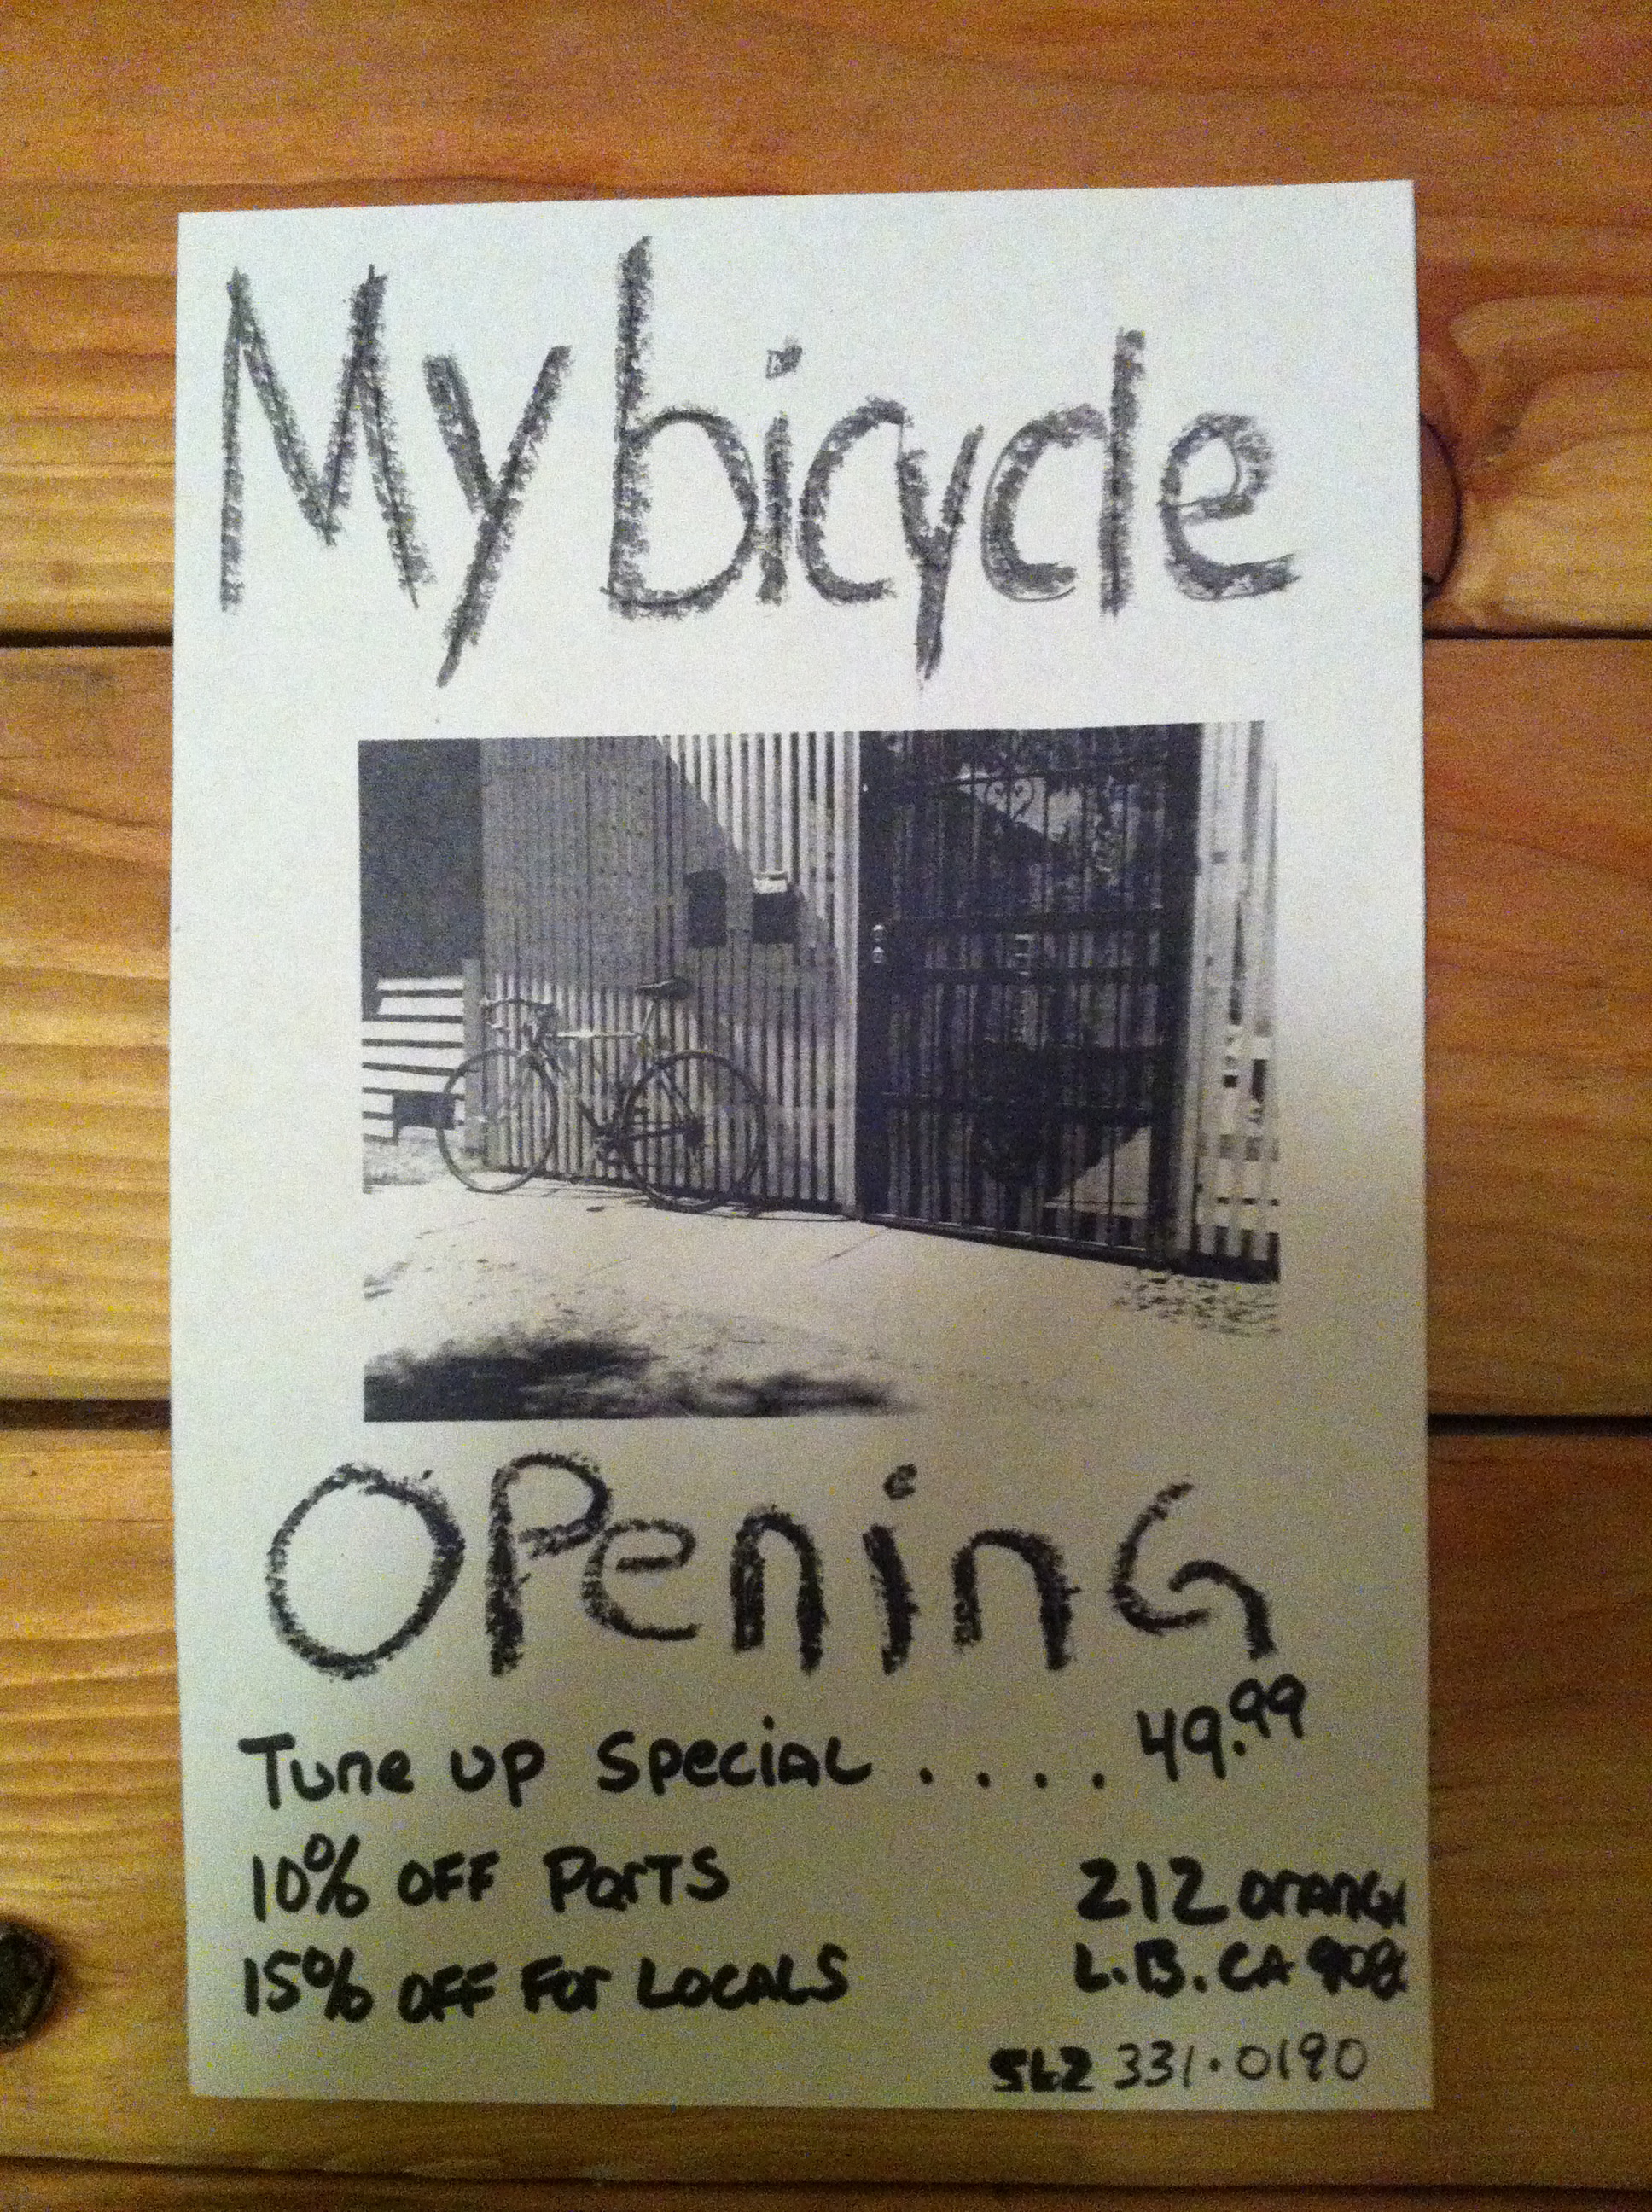 My bicycle
OPeninG
Tune up SpeciAL .... 49.99
10% OFF PArTS
15% OFF For LOCALS
212 OrANGe
L.B. CA 908
562 331.0190